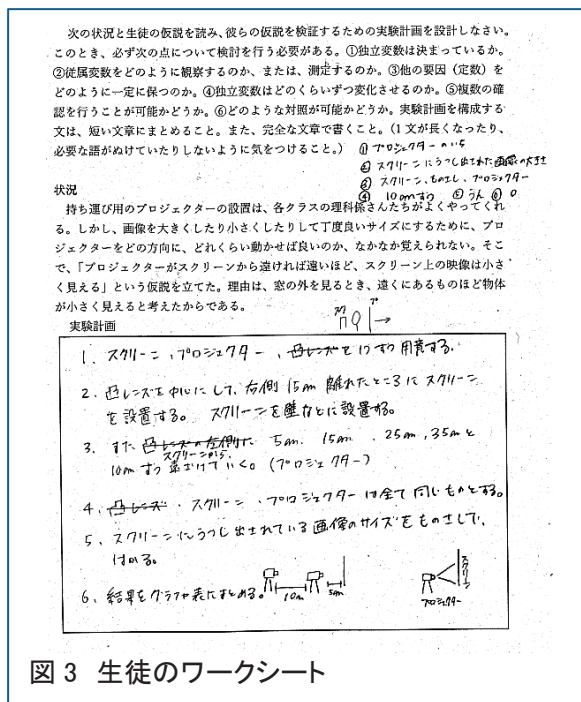 次の状況と生徒の仮説を読み、彼らの仮説を検証するための実験計画を設計しなさい。
このとき、必ず次の点について検討を行う必要がある。①独立変数は決まっているか。
②従属変数をどのように観察するのか、または、測定するのか。③他の要因（定数）を
どのように一定に保つのか。④独立変数はどのくらいずつ変化させるのか。⑤複数の確
認を行うことが可能かどうか。⑥どのような対照が可能かどうか。実験計画を構成する
文は、短い文章にまとめること。また、完全な文章で書くこと。（1文が長くなったり、
必要な語がぬけていたりしないように気をつけること。）
① プロジェクターのいち
② スクリーンにうつし出された画像の大きさ
③ スクリーン、ものさし、プロジェクター
④ 10cmずつ ⑤ うん ⑥ 0
状況
持ち運び用のプロジェクターの設置は、各クラスの理科係さんたちがよくやってくれ
る。しかし、画像を大きくしたり小さくしたりして丁度良いサイズにするために、プロ
ジェクターをどの方向に、どれくらい動かせば良いのか、なかなか覚えられない。そこ
で、「プロジェクターがスクリーンから遠ければ遠いほど、スクリーン上の映像は小さ
く見える」という仮説を立てた。理由は、窓の外を見るとき、遠くにあるものほど物体
が小さく見えると考えたからである。
実験計画
1. スクリーン、プロジェクター、凸レンズを1つずつ用意する。
2. 凸レンズを中心にして、右側15cm離れたところにスクリーン
を設置する。スクリーンを壁などに設置する。
3. また凸レンズの左側に スクリーンから 5cm、15cm、25cm、35cmと
10cmずつ遠ざけていく。（プロジェクター）
4. 凸レンズ、スクリーン、プロジェクターは全て同じものとする。
5. スクリーンにうつし出されている画像のサイズをものさしで、
はかる。
6. 結果をグラフや表にまとめる。
10cm
5cm
スクリーン
プロジェクター
図 3 生徒のワークシート